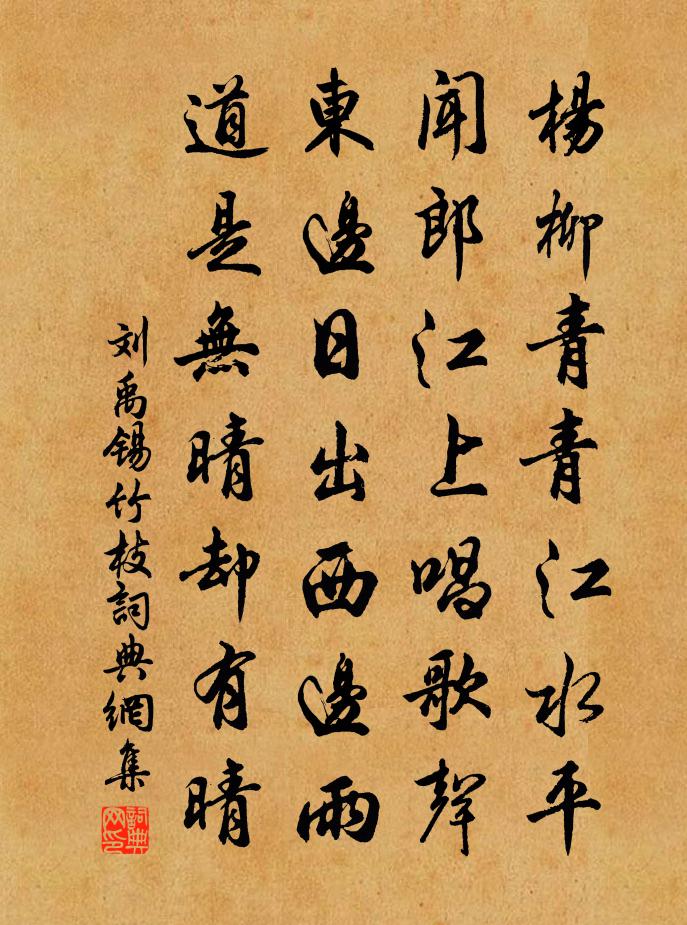 楊柳青青江水平
聞郎江上唱歌聲
東邊日出西邊雨
道是無晴却有晴
刘禹锡竹枝詞典網集
詞典网印